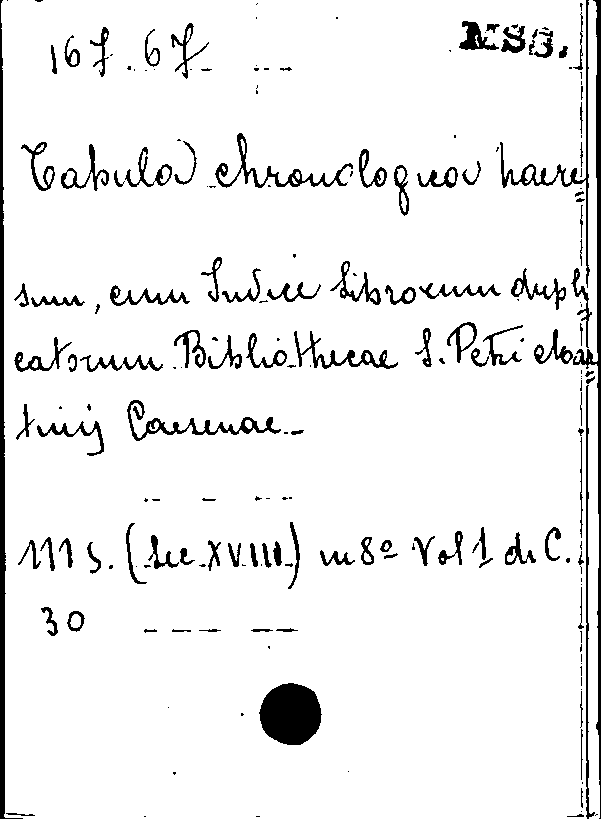 167.67 MSS.
Tabula chronologica haere=
sum, cum Indice Librorum dupli=
catorum Bibliothecae S. Petri Mar=
tirij Caesenae.
MS. (Sec. XVIII) in 8º Vol 1 di C.
30